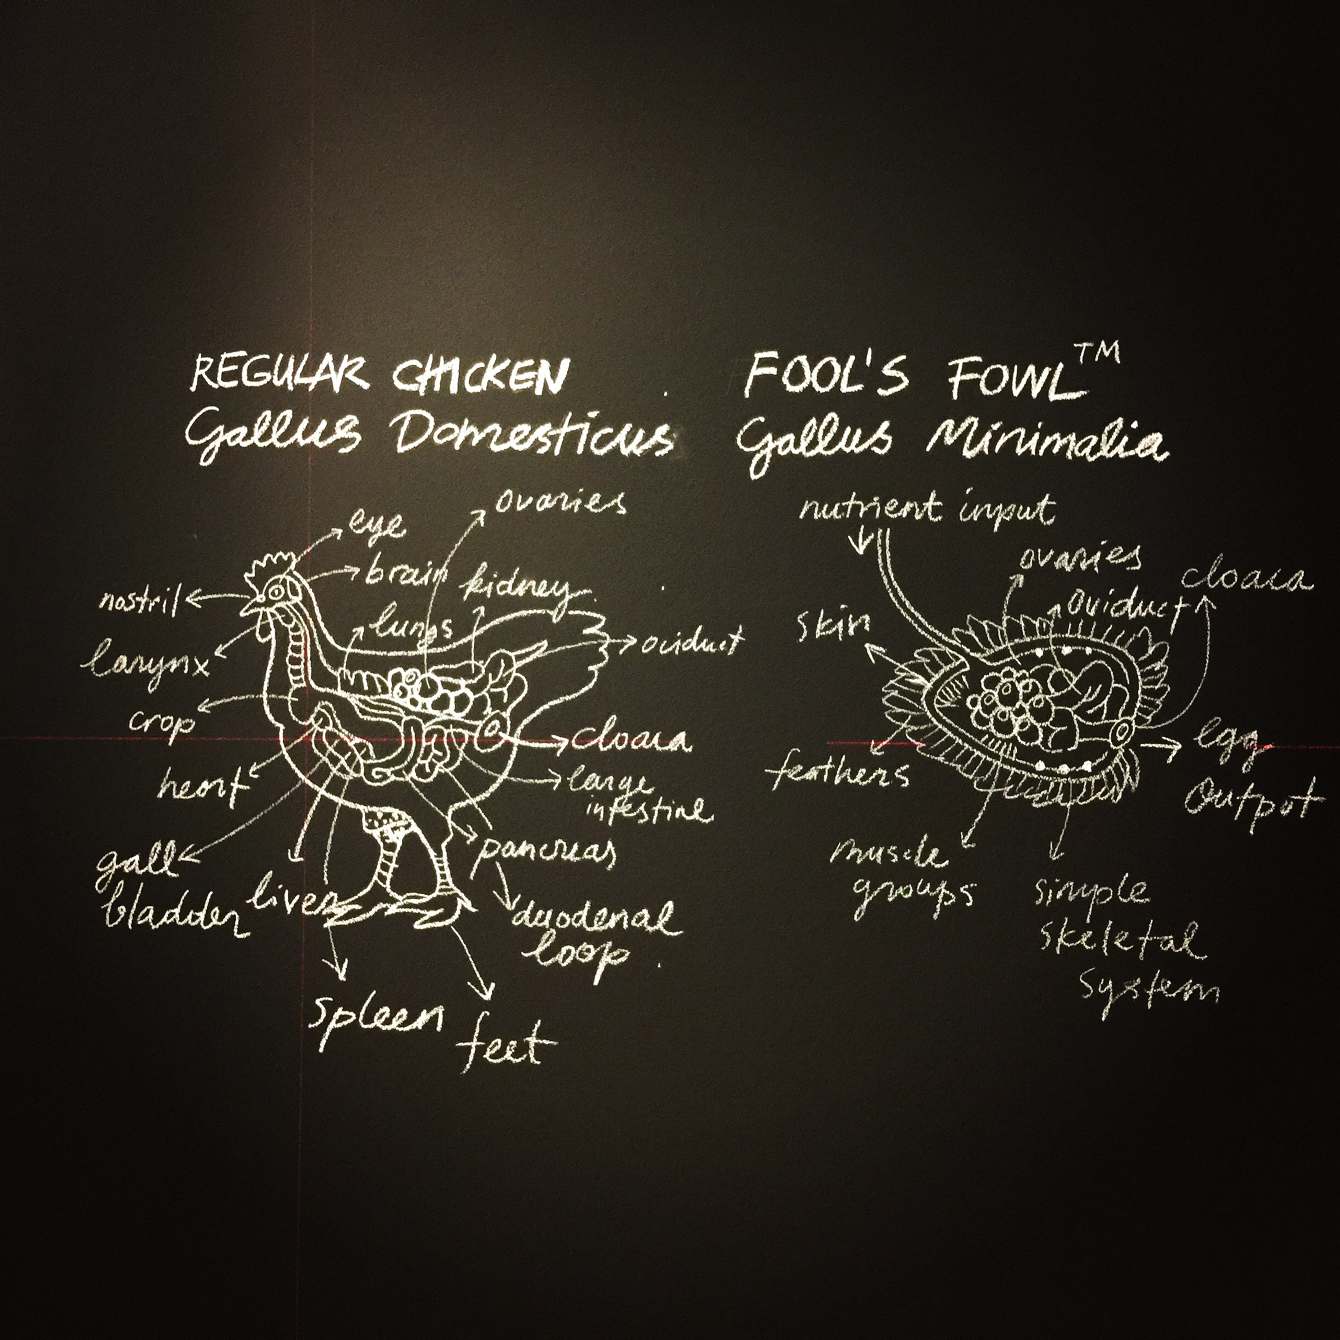 REGULAR CHICKEN
Gallus Domesticus
ovaries
eye
brain
kidney
nostril
lungs
larynx
oviduct
crop
cloaca
heart
large
intestine
gall
bladder
liver
pancreas
duodenal
loop
spleen
feet
FOOL'S FOWL™
Gallus Minimalia
nutrient input
ovaries
cloaca
oviduct
skin
feathers
egg
output
muscle
groups
simple
skeletal
system